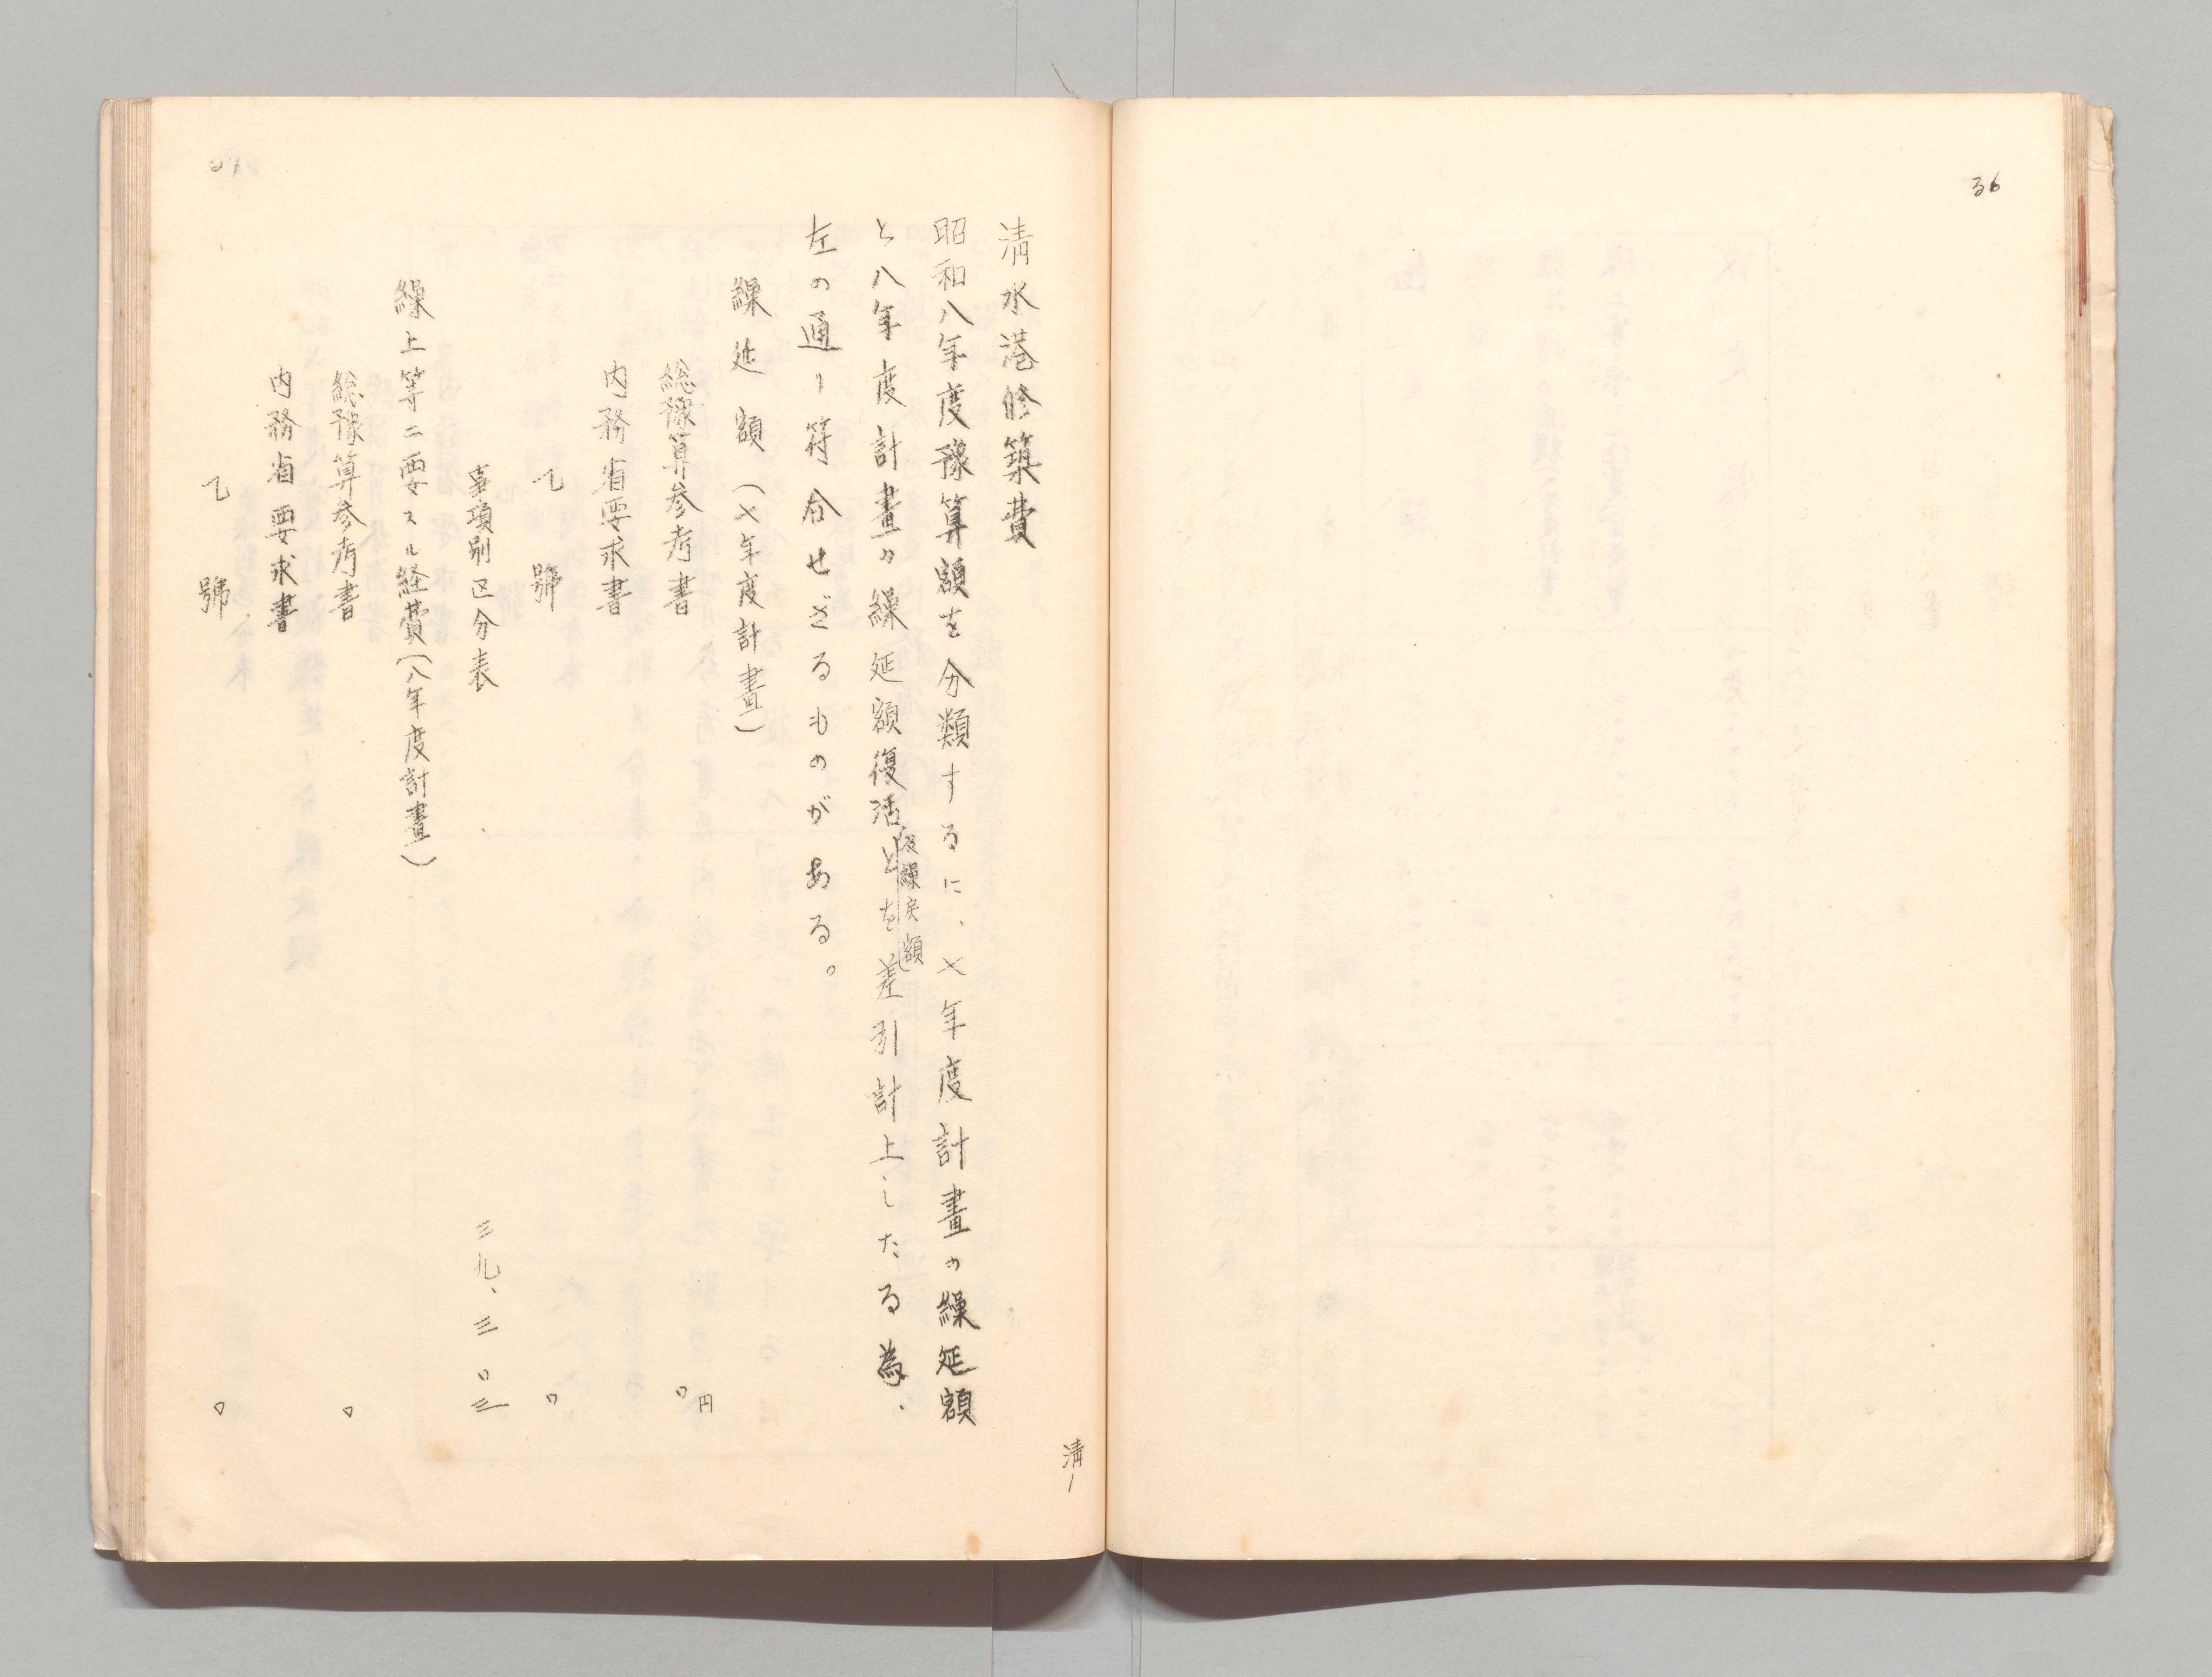 36
清水港修築費
昭和八年度豫算額を分類するに、七年度計畫の繰延額
と八年度計畫の繰延額復活及繰戻額とを差引計上したる為、
左の通り符合せざるものがある。
繰延額（七年度計畫）
総豫算参考書 〇円
内務省要求書
乙號 〇
事項別区分表 三九、三〇三
繰上等ニ要スル経費（八年度計畫）
総豫算参考書 〇
内務省要求書
乙號 〇
清1